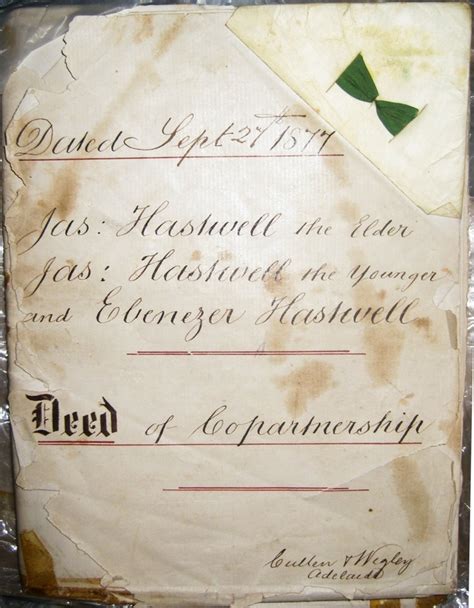 Dated Sept 27th 1877
Jas: Hastwell the Elder
Jas: Hastwell the Younger
and Ebenezer Hastwell
Deed of Copartnership
Cullen & Wigley
Adelaide